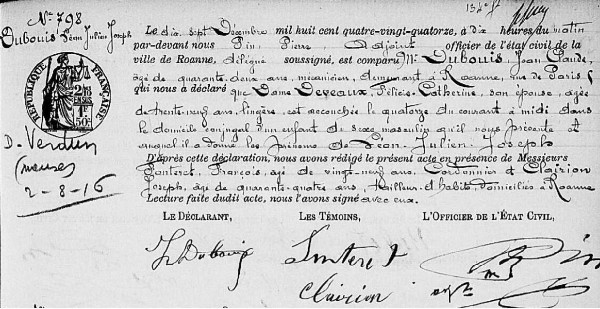 N° 798
Dubouis Léon Julien Joseph
RÉPUBLIQUE FRANÇAISE
D. Verdun
(meuse)
2-8-16
Le dix sept Décembre mil huit cent quatre-vingt-quatorze, à dix heures du matin
par-devant nous Pin Pierre Adjoint officier de l'état civil de la
ville de Roanne, délégué soussigné, est comparu Mr Dubouis Jean Claude,
âgé de quarante deux ans, mécanicien, demeurant à Roanne, rue de Paris
qui nous a déclaré que Dame Deveaux, Félicie Catherine, son épouse, âgée
de trente neuf ans, lingère, est accouchée le quatorze du courant à midi dans
le domicile conjugal d'un enfant de sexe masculin qu'il nous présente et
auquel il a donné les prénoms de Léon Julien Joseph
D'après cette déclaration, nous avons rédigé le présent acte en présence de Messieurs
François, âgé de vingt neuf ans, Cordonnier et Clairion
Joseph, âgé de quarante quatre ans, tailleur d'habits, domiciliés à Roanne
Lecture faite dudit acte, nous l'avons signé avec eux.
LE DÉCLARANT, LES TÉMOINS, L'OFFICIER DE L'ÉTAT CIVIL,
Dubouis
Clairion
Pin